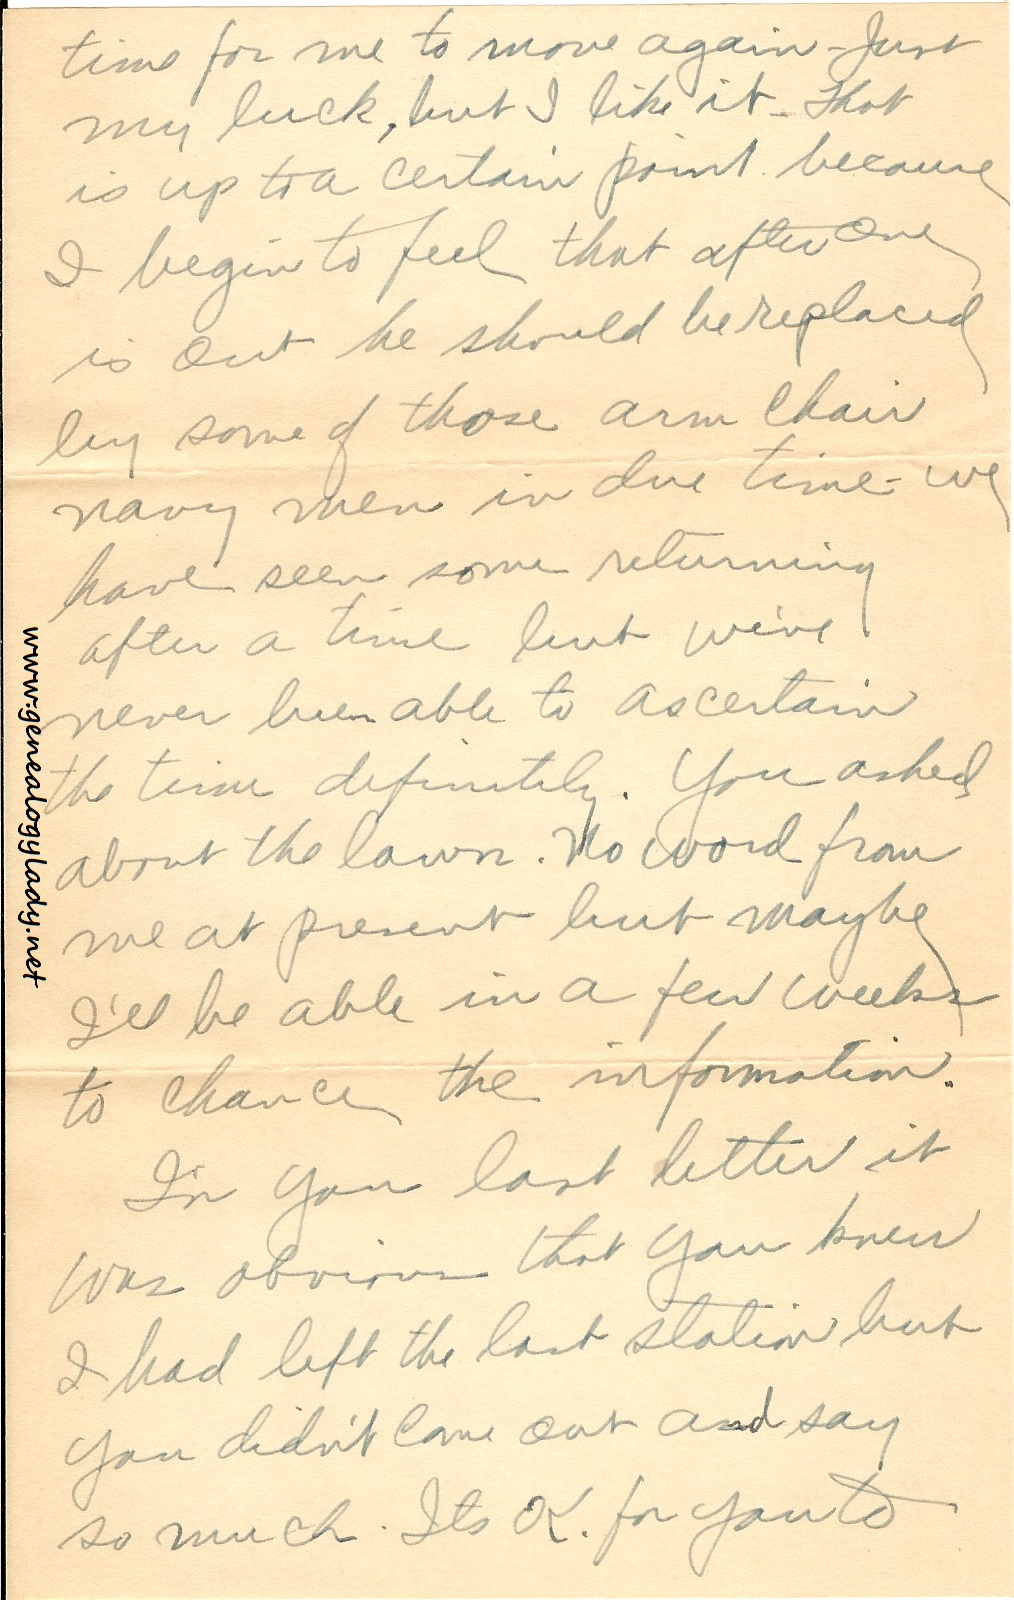 time for me to move again - Just
my luck, but I like it - that
is up to a certain point because
I begin to feel that after one
is out he should be replaced
by some of those arm chair
navy men in due time - we
have seen some returning
after a time but we've
never been able to ascertain
the time definitely. You asked
about the lawn. No word from
me at present but maybe
I'll be able in a few weeks
to chance the information.
In your last letter it
was obvious that you knew
I had left the last station but
you didn't come out and say
so much. Its OK. for you to
www.genealogylady.net